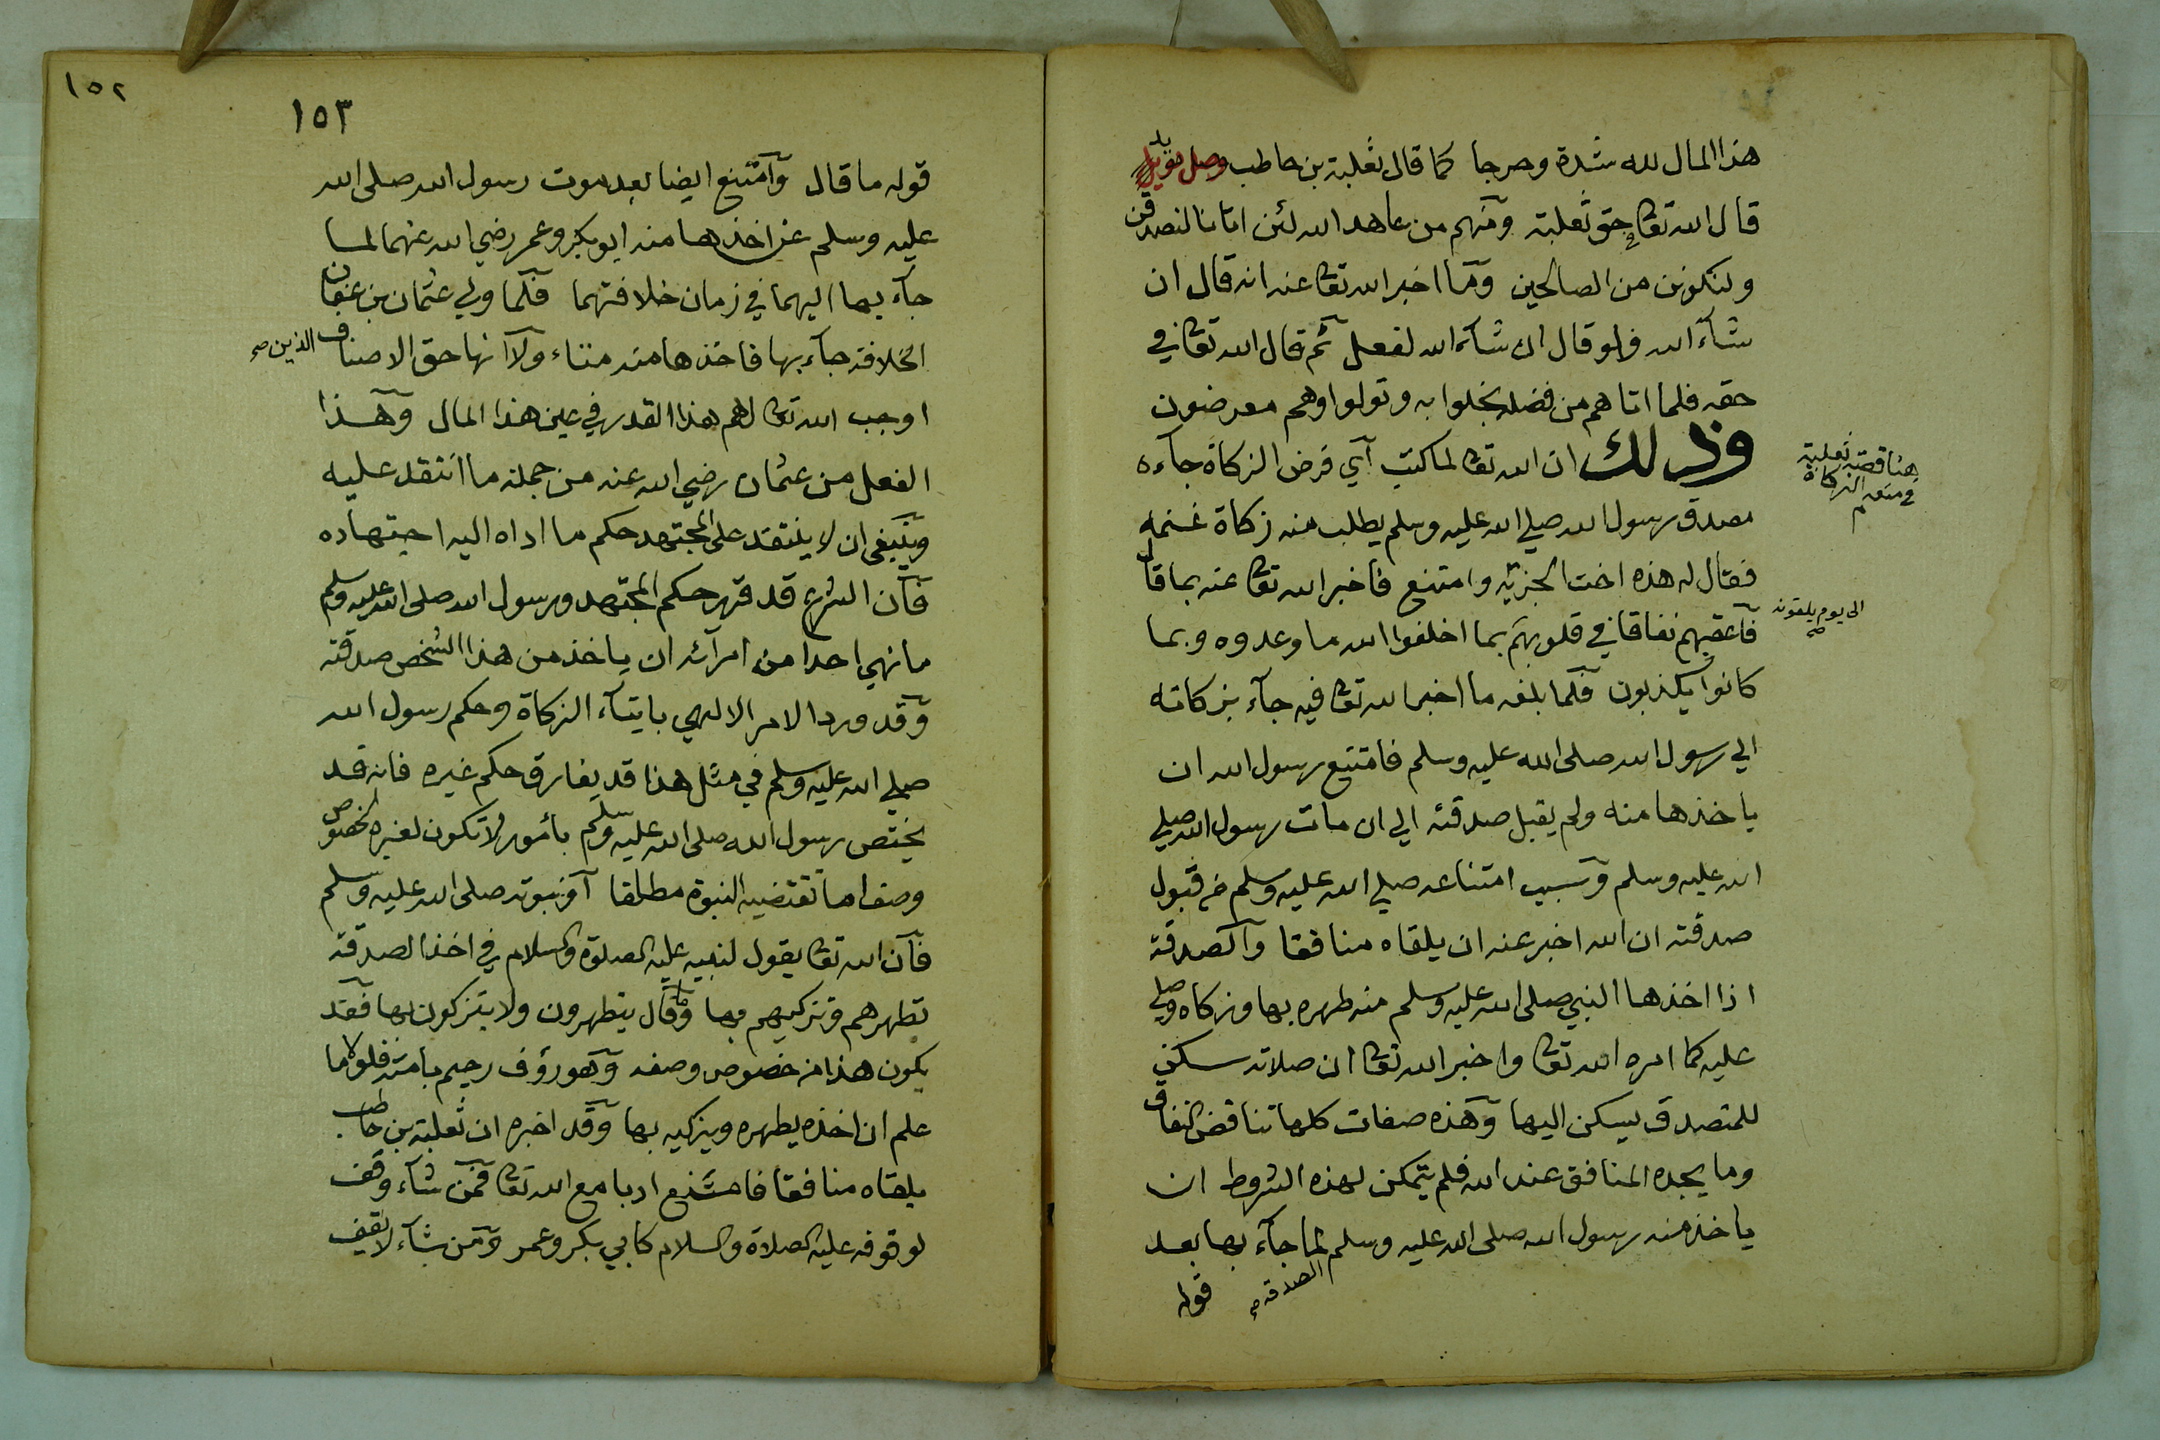 هذا المال لله شدة وحرجا كما قال ثعلبة بن حاطب وصل
قال الله تعا في حق ثعلبة ومنهم من عاهد الله لئن اتانا لنصدقن
ولنكونن من الصالحين وما اخبر الله تعا عنه انه قال ان
شآء الله فلو قال ان شآء الله لفعل ثم قال الله تعا في
حقه فلما اتاهم من فضله بخلوا به وتولوا وهم معرضون
وذلك ان الله تعا لما كتب آي فرض الزكاة جآءه
هنا قصة ثعلبة
في منعه الزكاة
مصدق رسول الله صلي الله عليه وسلم يطلب منه زكاة غنمه
فقال له هذه اخت الجزية وامتنع فاخبر الله تعا عنه بما قال
فاعقبهم نفاقا في قلوبهم بما اخلفوا الله ما وعدوه وبما
الى يوم يلقونه صح
كانوا يكذبون فلما بلغه ما اخبر الله تعا فيه جآء بزكاته
الي رسول الله صلى الله عليه وسلم فامتنع رسول الله ان
ياخذها منه ولم يقبل صدقته الي ان مات رسول الله صلي
الله عليه وسلم وسبب امتناعه صلي الله عليه وسلم من قبول
صدقته ان الله اخبر عنه ان يلقاه منافقا والصدقة
اذا اخذها النبي صلى الله عليه وسلم منه طهره بها وزكاه وصلي
عليه كما امره الله تعا واخبر الله تعا ان صلاته سكن
للمتصدق يسكن اليها وهذه صفات كلها تناقض النفاق
وما يجده المنافق عند الله فلم يتمكن لهذه الشروط ان
ياخذ منه رسول الله صلى الله عليه وسلم لما جآء بها بعد
الصدقة صح
قوله
١٥٢
١٥٣
قوله ما قال وامتنع ايضا بعد موت رسول الله صلى الله
عليه وسلم عن اخذها منه ابو بكر وعمر رضي الله عنهما لما
جآء بها اليهما في زمان خلافتهما فلما ولي عثمان بن عفان
الخلافة جآء بها فاخذها منه متاء ولا انها حق الاصناف الذين صح
اوجب الله تعا لهم هذا القدر في عين هذا المال وهذا
الفعل من عثمان رضي الله عنه من جملة ما انتقد عليه
وينبغي ان لا ينتقد على المجتهد حكم ما اداه اليه اجتهاده
فان الشرع قد قرر حكم المجتهد ورسول الله صلى الله عليه وسلم
ما نهي احدا من امرآئه ان ياخذ من هذا الشخص صدقته
وقد ورد الامر الالهي بايتآء الزكاة وحكم رسول الله
صلي الله عليه وسلم في مثل هذا قد يفارق حكم غيره فانه قد
يختص رسول الله صلى الله عليه وسلم بأمور لا تكون لغيره لخصوص
وصف اما تقتضيه النبوة مطلقا او نبوته صلى الله عليه وسلم
فان الله تعا يقول لنبيه عليه الصلوة والسلام في اخذ الصدقة
تطهرهم وتزكيهم بها وما قال يتطهرون ولا يتزكون بها فقد
يكون هذا من خصوص وصفه وهو رؤف رحيم بامته فلولا ما
علم ان اخذه يطهره ويزكيه بها وقد اخبره ان ثعلبة بن حاطب
يلقاه منافقا فامتنع ادبا مع الله تعا فمن شآء وقف
لوقوفه عليه الصلاة والسلام كابي بكر وعمر ومن شآء لا يقف